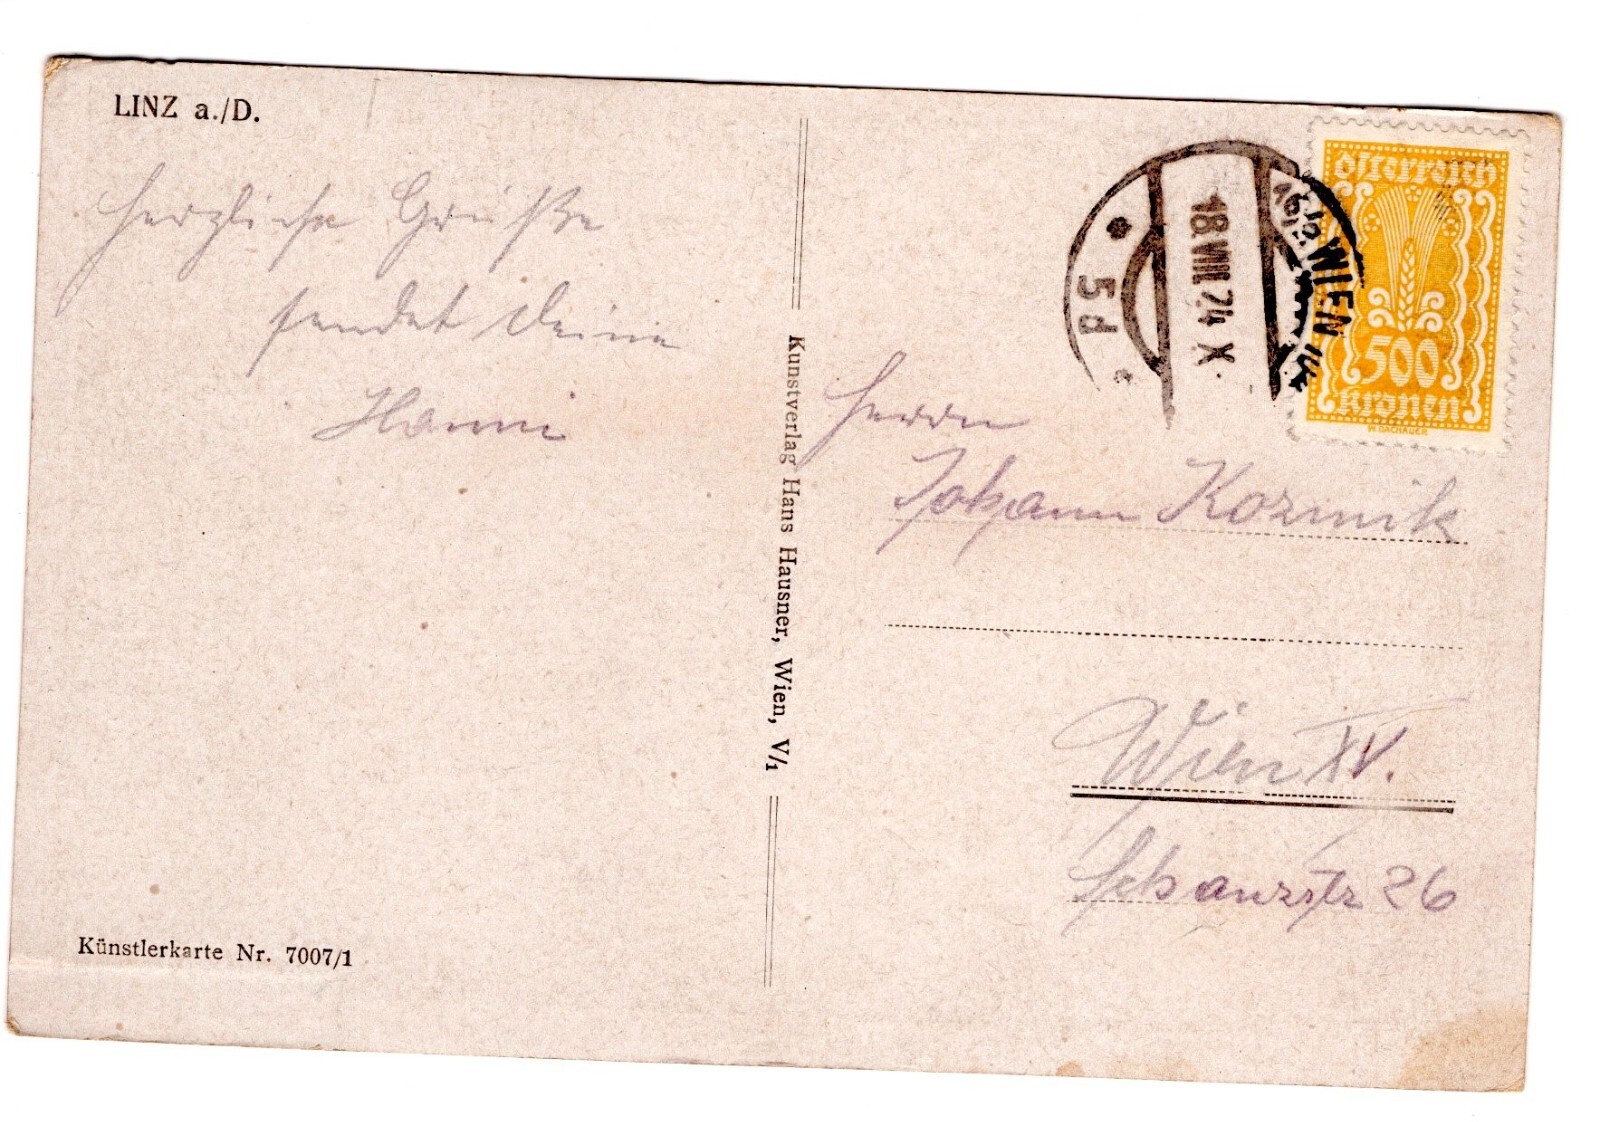 LINZ a./D.
Herzliche Grüße
sendet Deine
Hanni
Künstlerkarte Nr. 7007/1
Kunstverlag Hans Hausner, Wien, V/1
WIEN
18.VIII.24 X
5d
Österreich
500
Kronen
W. DACHAUER
Herrn
Johann Kozmik
Wien XV.
Schanzstr 26